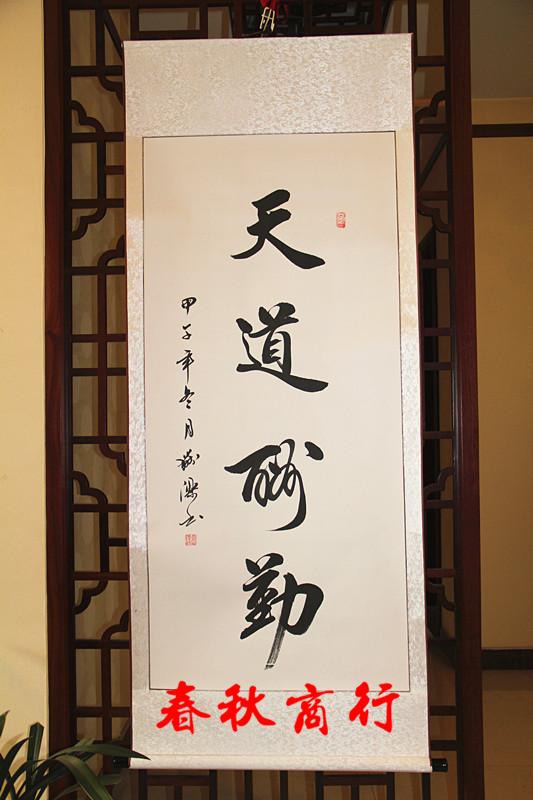 天道酬勤
甲子年冬月
春秋商行